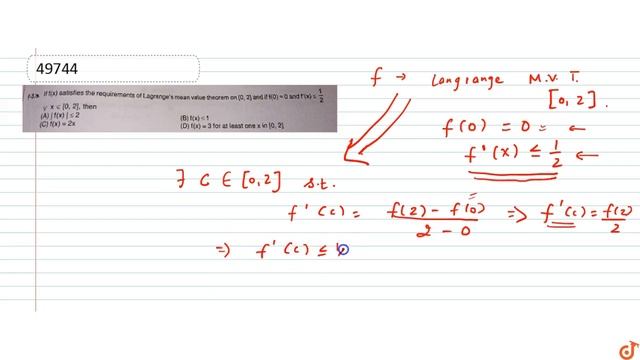 49744
If f(x) satisfies the requirements of Lagrange's mean value theorem on [0, 2] and if f(0) = 0 and f'(x) ≤ 1/2
∀ x ∈ [0, 2], then
(A) | f(x) | ≤ 2 (B) f(x) < 1
(C) f(x) = 2x (D) f(x) = 3 for at least one x in [0, 2]
f → Langrange M.V.T.
[0, 2].
f(0) = 0 = ←
f'(x) ≤ 1/2 ←
∃ C ∈ [0,2] s.t.
f'(c) = f(2) - f(0) / 2 - 0 => f'(c) = f(2)/2
=> f'(c) ≤
doubtnut